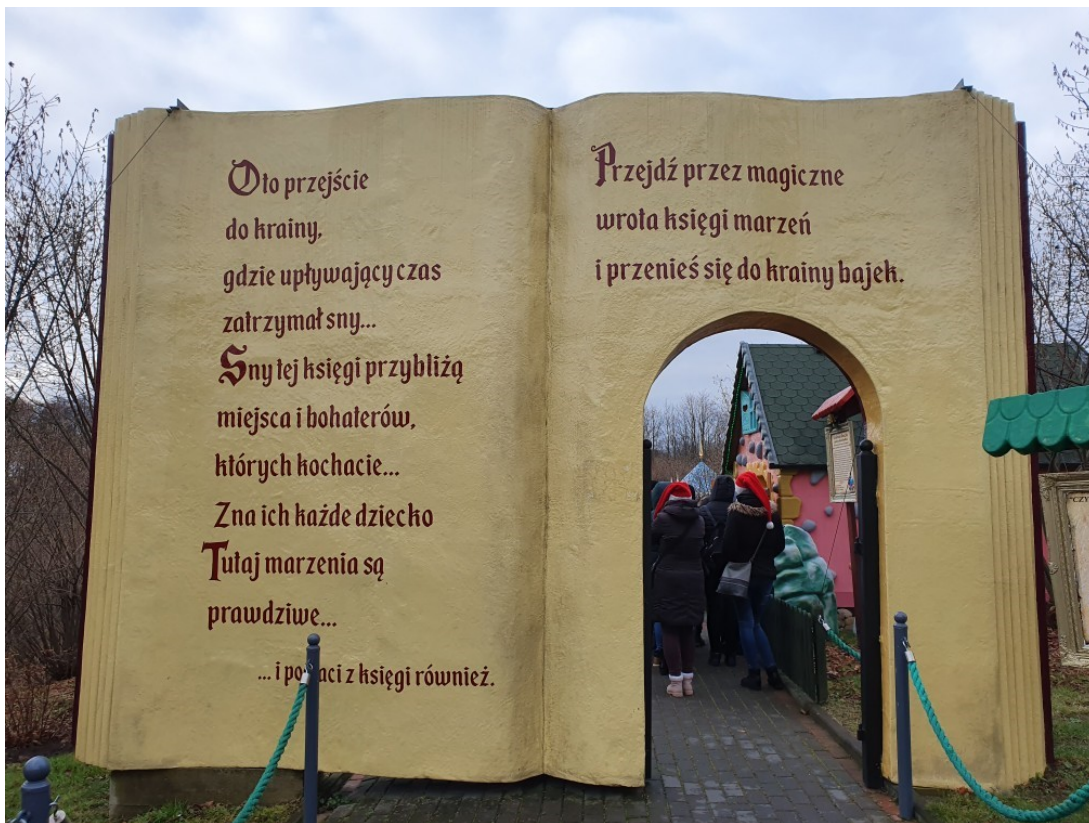 Oto przejście
do krainy,
gdzie upływający czas
zatrzymał sny...
Sny tej księgi przybliżą
miejsca i bohaterów,
których kochacie...
Zna ich każde dziecko
Tutaj marzenia są
prawdziwe...
... i po aci z księgi również.
Przejdź przez magiczne
wrota księgi marzeń
i przenieś się do krainy bajek.